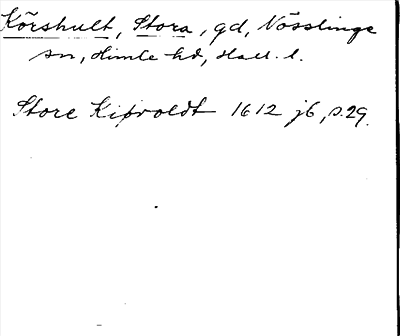 Körshult, Stora, gd, Nösslinge
sn, Himle hd, Hall. l.
Store Kiørholdt 1612 jb, s. 29.